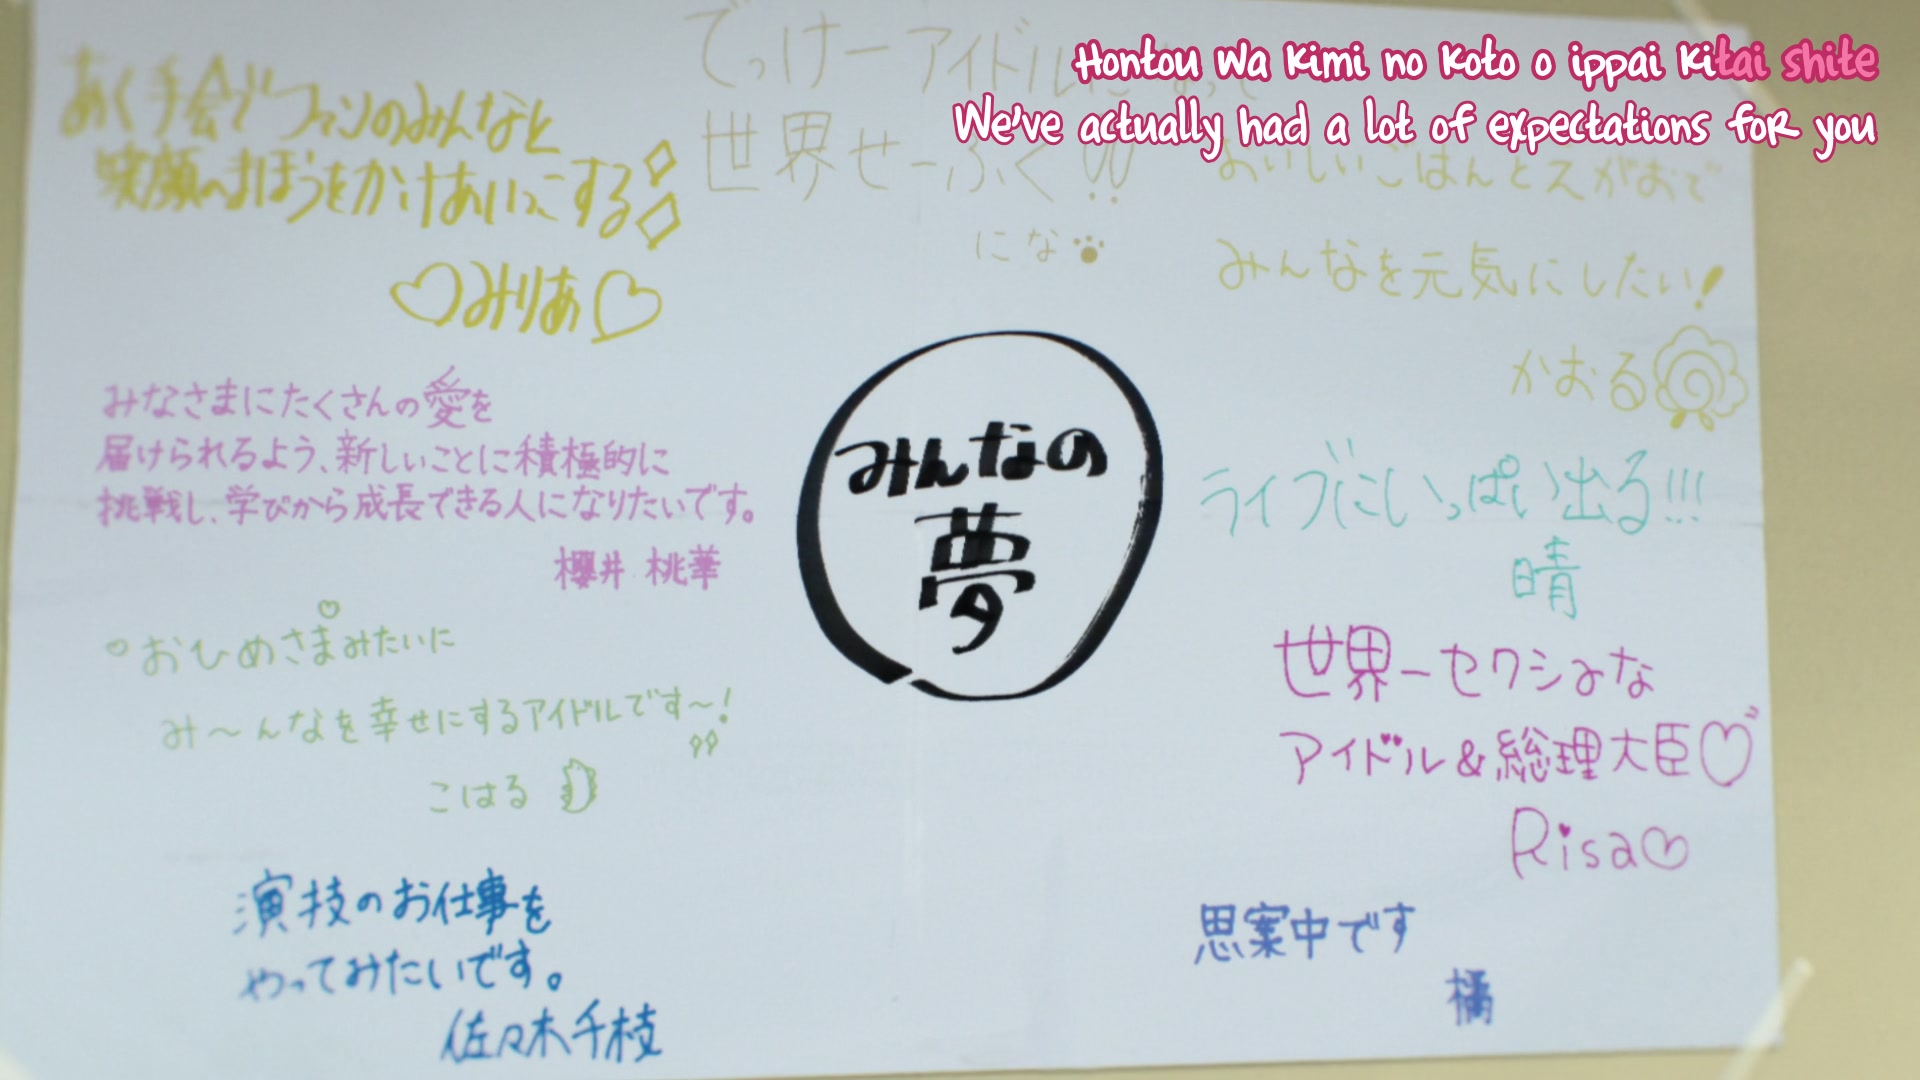 Hontou wa kimi no koto o ippai kitai shite
We've actually had a lot of expectations for you
あく手会でファンのみんなと
笑顔のまほうをかけあいっこする
みりあ
でっけーアイドルになって
世界せーふく!!
にな
おいしいごはんとえがおで
みんなを元気にしたい!
かおる
みなさまにたくさんの愛を
届けられるよう、新しいことに積極的に
挑戦し、学びから成長できる人になりたいです。
櫻井 桃華
みんなの
夢
ライブにいっぱい出る!!!
晴
おひめさまみたいに
み〜んなを幸せにするアイドルです〜!
こはる
世界一セクシーな
アイドル&総理大臣♡
Risa♡
演技のお仕事を
やってみたいです。
佐々木千枝
思案中です
橘